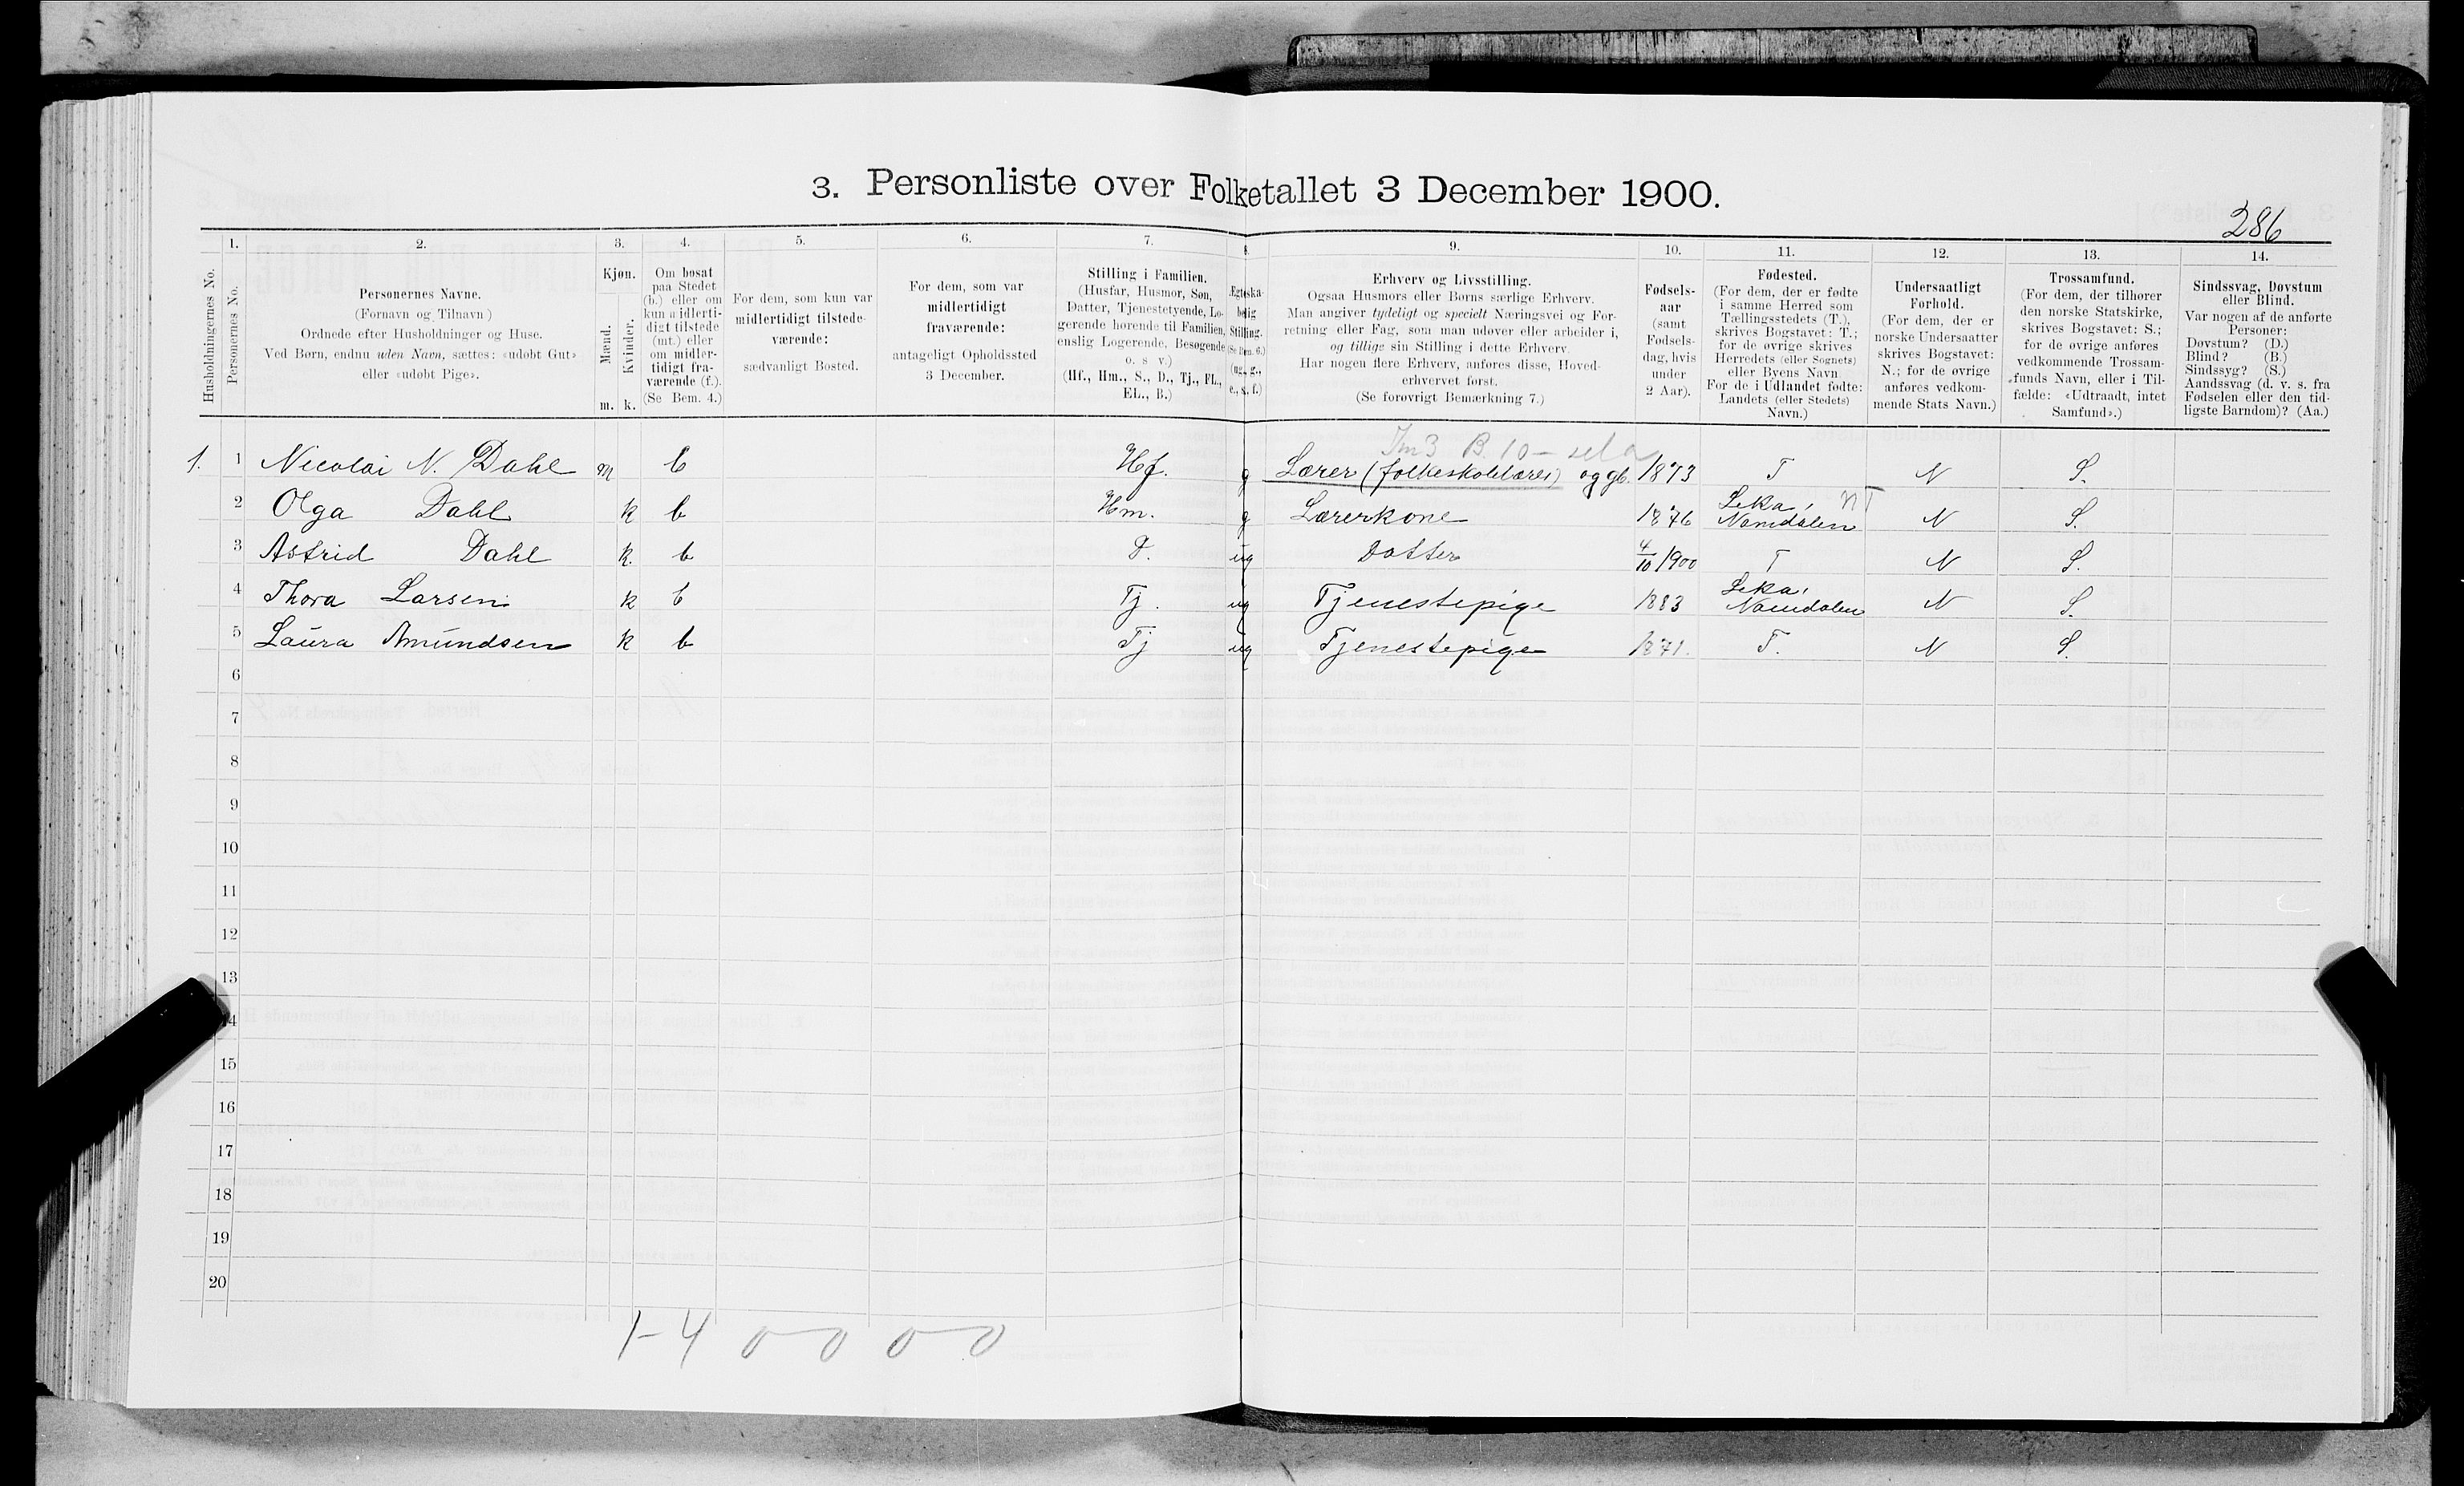 3. Personliste over Folketallet 3 December 1900.
286
1. 2. 3. 4. 5. 6. 7. 8. 9. 10. 11. 12. 13. 14.
Husholdningernes No.
Personernes No.
Personernes Navne.
(Fornavn og Tilnavn)
Ordnede efter Husholdninger og Huse.
Ved Børn, endnu uden Navn, sættes: «udøbt Gut»
eller «udøbt Pige».
Kjøn.
Mænd.
Kvinder.
m. k.
Om bosat
paa Stedet
(b.) eller om
kun midlerti-
digt tilstede
(mt.) eller
om midler-
tidigt fra-
værende (f.).
(Se Bem. 4.)
For dem, som kun var
midlertidigt tilstede-
værende:
sædvanligt Bosted.
For dem, som var
midlertidigt
fraværende:
antageligt Opholdssted
3 December.
Stilling i Familien.
(Husfar, Husmor, Søn,
Datter, Tjenestetyende, Lo-
gerende hørende til Familien,
enslig Logerende, Besøgende
o. s v.)
(Hf., Hm., S., D., Tj., FL.,
EL., B.)
Ægteska-
belig
Stilling.
(Se Bem. 6.)
(ug., g.,
e., s., f.)
Erhverv og Livsstilling.
Ogsaa Husmors eller Børns særlige Erhverv.
Man angiver tydeligt og specielt Næringsvei og For-
retning eller Fag, som man udøver eller arbeider i,
og tillige sin Stilling i dette Erhverv.
Har nogen flere Erhverv, anføres disse, Hoved-
erhvervet først.
(Se forøvrigt Bemærkning 7.)
Fødsels-
aar
(samt
Fødsels-
dag, hvis
under
2 Aar).
Fødested.
(For dem, der er fødte
i samme Herred som
Tællingsstedets (T.),
skrives Bogstavet: T.;
for de øvrige skrives
Herredets (eller Sognets)
eller Byens Navn.
For de i Udlandet fødte:
Landets (eller Stedets)
Navn.)
Undersaatligt
Forhold.
(For dem, der er
norske Undersaatter
skrives Bogstavet:
N.; for de øvrige
anføres vedkom-
mende Stats Navn.)
Trossamfund.
(For dem, der tilhører
den norske Statskirke,
skrives Bogstavet: S.;
for de øvrige anføres
vedkommende Trossam-
funds Navn, eller i Til-
fælde: «Udtraadt, intet
Samfund».)
Sindssvag, Døvstum
eller Blind.
Var nogen af de anførte
Personer:
Døvstum? (D.)
Blind? (B.)
Sindssyg? (S.)
Aandssvag (d. v. s. fra
Fødselen eller den tid-
ligste Barndom)? (Aa.)
1. 1 Nicolai N. Dahl m b Hf. g Lærer (folkeskolelærer) og gb. 1873 T N S.
2 Olga Dahl k b Hm. g Lærerkone 1876 Leka, Namdalen NT N S.
3 Astrid Dahl k. b D. ug Datter 4/10 1900 T N S.
4 Thora Larsen k b Tj. ug Tjenestepige 1883 Leka, Namdalen N S.
5 Laura Amundsen k b Tj ug Tjenestepige 1871. T. N S.
6
7
8
9
10
11
12
13
14
15
16
17
18
19
20
1-4 0-0 0-0